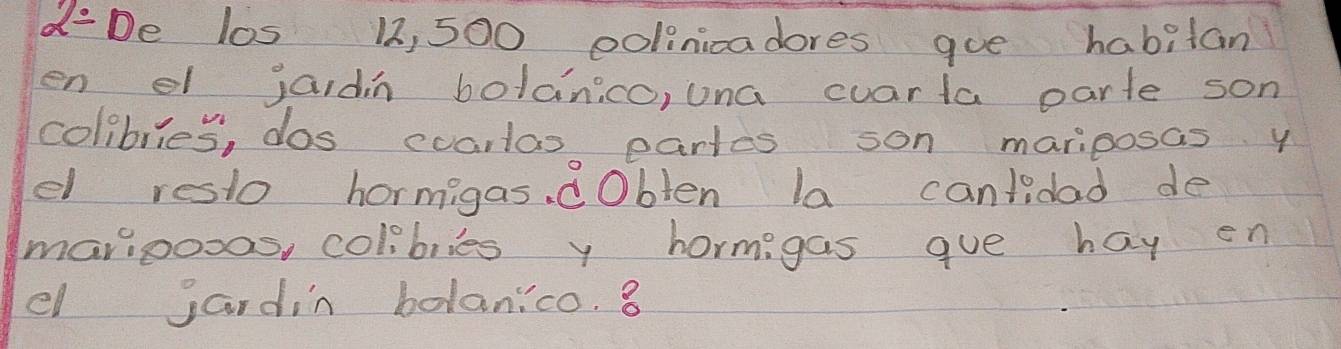 2.- De los 12,500 polinicadores que habitan
en el jardín botánico, una cuarta parte son
colibríes, dos cuartas partes son mariposas y
el resto hormigas. ¿Obten la cantidad de
mariposas, colibríes y hormigas que hay en
el jardín botanico.?